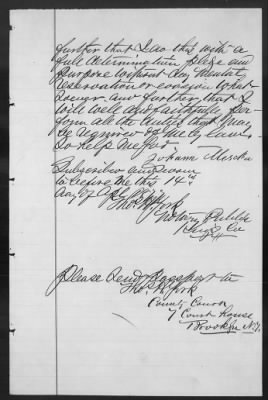 further that I do this with a
full determination pledge and
purpose without any mental
reservation or evasion what-
soever and further that I
will well and faithfully per-
form all the duties that may
be required of me by law
So help me God
Johann
Subscribed and sworn
to before me this 14th
day of
Notary Public
Kings Co
Please send Passport to
York
County Court
Court House
Brooklyn N.Y.